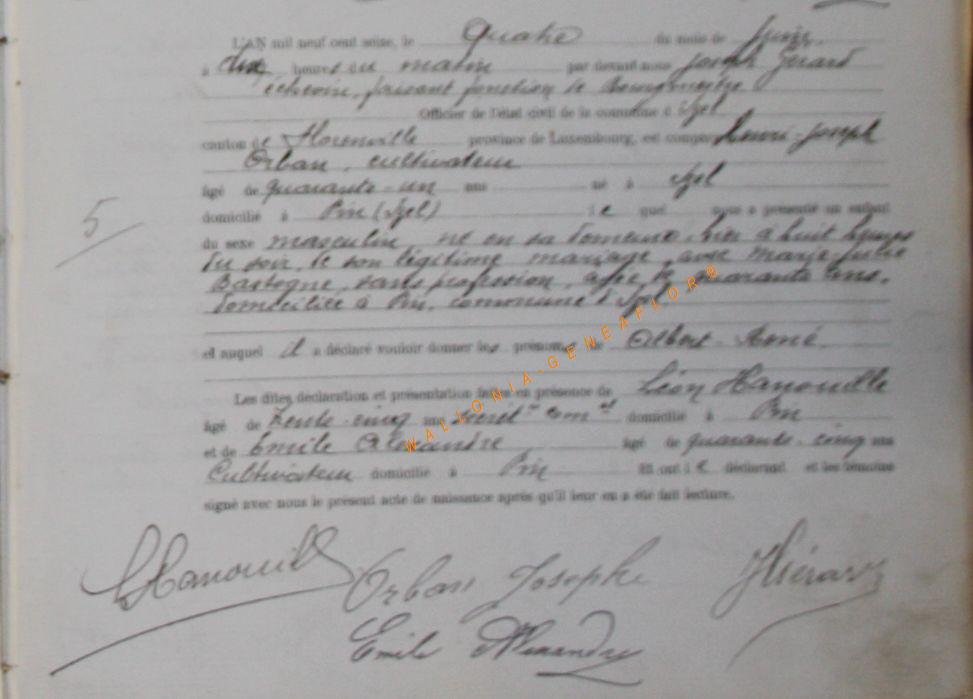 L'AN mil neuf cent seize, le Quatre du mois de Juin
à dix heures du matin par devant nous Joseph
échevin, faisant fonction de Bourgmestre
Officier de l'état civil de la commune d'Izel
canton de Florenville province de Luxembourg, est comparu Henri-Joseph
Orban, cultivateur
âgé de quarante-un ans né à Izel
domicilié à Pin (Izel) le quel nous a présenté un enfant
5
du sexe masculin, né en sa demeure, hier à huit heures
du soir, de son légitime mariage, avec Marie-Julie
Bastogne, sans profession, âgée de quarante ans,
domiciliée à Pin, commune d'Izel
et auquel il a déclaré vouloir donner les prénoms de Albert-Aimé
Les dites déclaration et présentation faites en présence de Léon Hanouille
âgé de trente-cinq ans secrét. com.al domicilié à Pin
et de Emile Alexandre âgé de quarante-cinq ans
Cultivateur domicilié à Pin Et ont le déclarant et les témoins
signé avec nous le présent acte de naissance après qu'il leur en a été fait lecture.
LHanouille Orban Josephe
Emile Alexandre
WALLONIA-GENEAFLORE